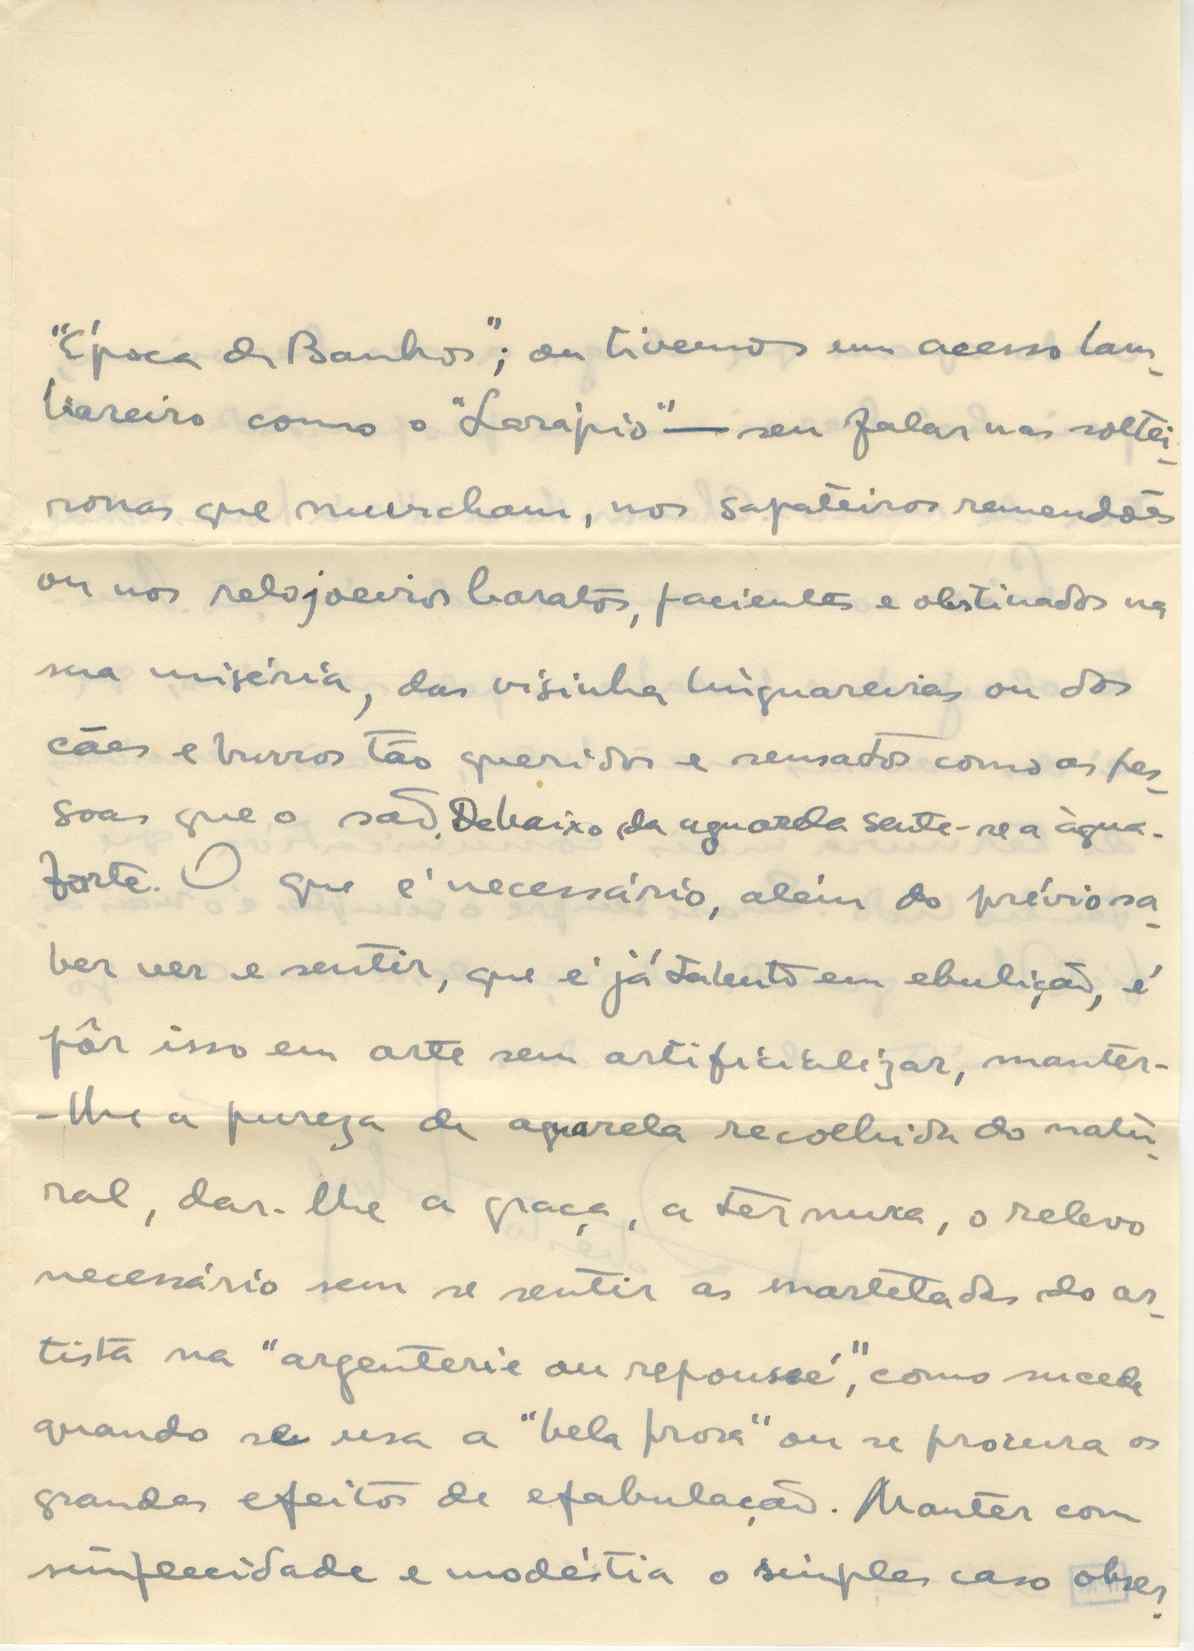 "Época de Banhos"; ou tivemos um acesso lam-
bareiro como o "Larápio" — sem falar nas soltei-
ronas que murcham, nos sapateiros remendões
ou nos relojoeiros baratos, pacientes e obstinados na
sua miséria, das visinha linguareiras ou dos
cães e burros tão queridos e sensatos como as pes-
soas que o são. Debaixo da aguarda sente-se a àgua-
forte. O que é necessário, além do prévio sa-
ber ver e sentir, que é já talento em ebulição, é
pôr isso em arte sem artificializar, manter-
-lhe a pureza de aguarela recolhida do natu-
ral, dar-lhe a graça, a ternura, o relevo
necessário sem se sentir as marteladas do ar-
tista na "argenterie au repoussé", como sucede
quando se usa a "bela prosa" ou se procura os
grandes efeitos de efabulação. Manter com
simplecidade e modéstia o simples caso obser-